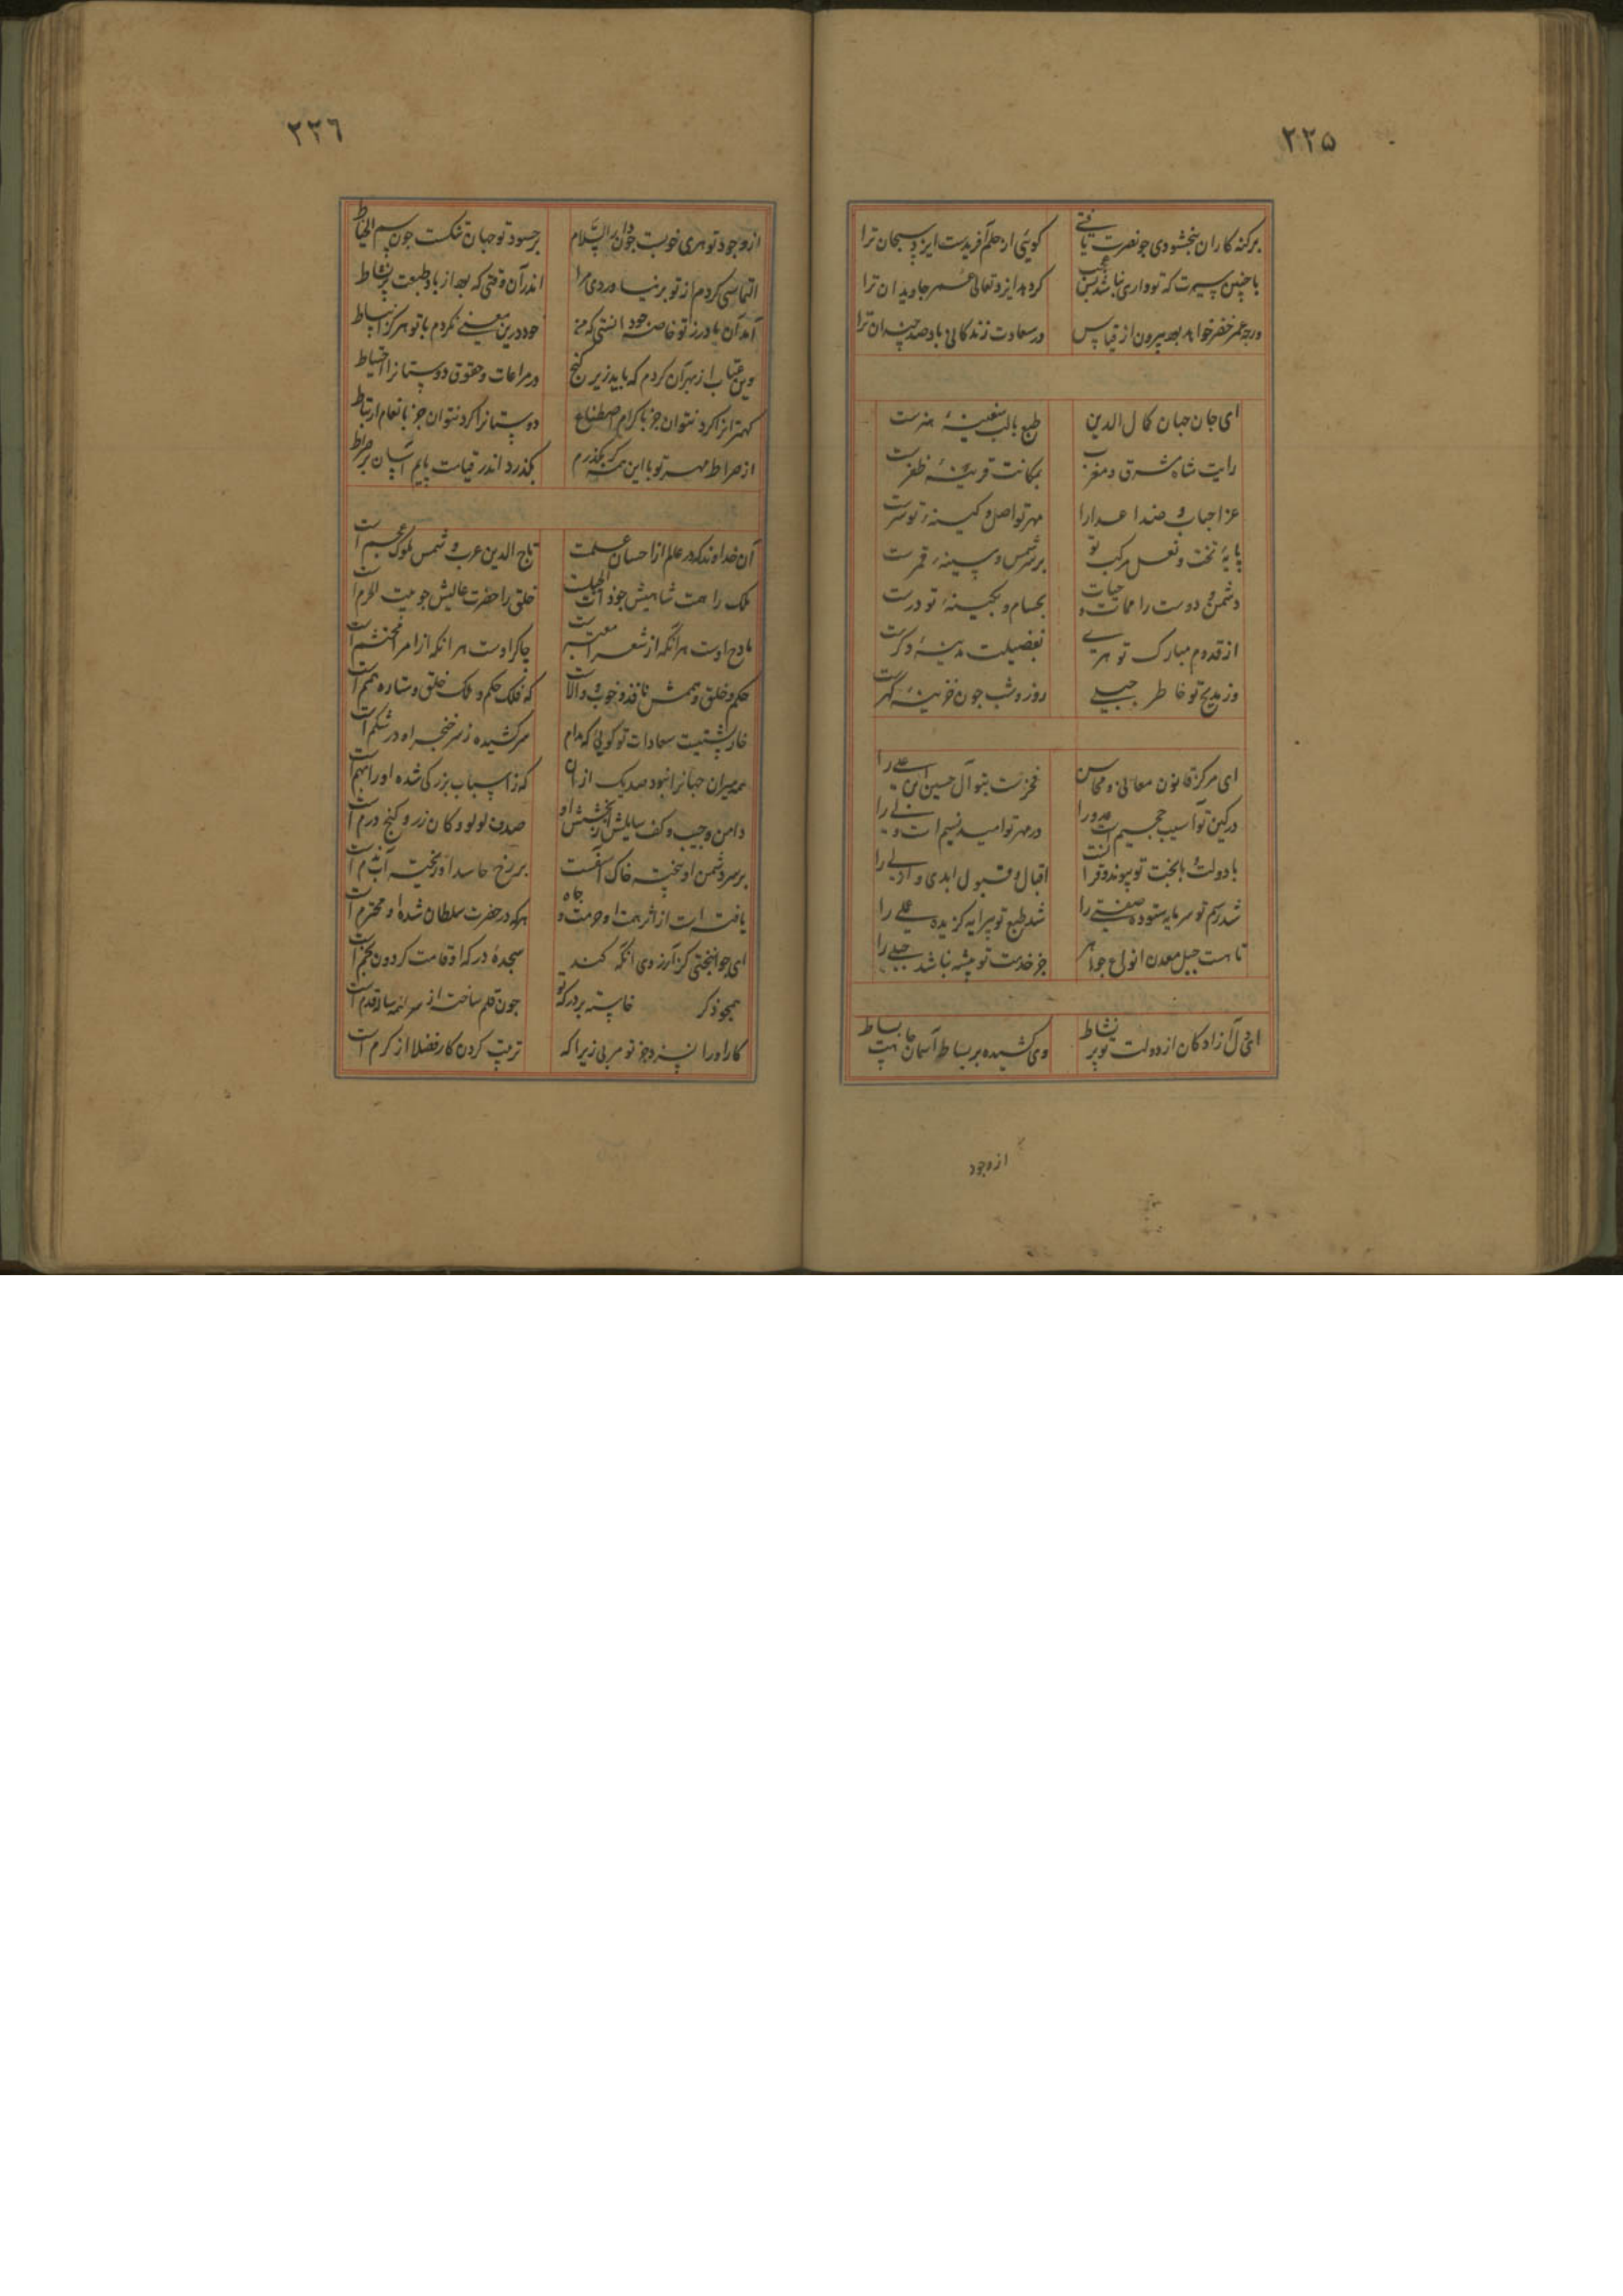 ۲۲۵
بر گنه کاران ببخشودی چو نصرت یافتی کویئی از حلم آفریدست ایزد سبحان ترا
با چنین سیرت که تو داری نباشد بس عجب کر دهد ایزد تعالی عمر جاویدان ترا
ورچه عمر خضر خواهد بود بیرون از قیاس در سعادت زندکانی باد صد چندان ترا
ای جان جهان کمال الدین طبع بالب سفینهٔ هنرست
رایت شاه مشرق و مغرب بمکانت قرینهٔ ظفرست
عز احباب و ضد اعدا را مهر تو اصل و کینهٔ تو سرست
پایهٔ تخت و نعل مرکب تو بر شمس و سینهٔ قمرست
دشمن و دوست را ممات و حیات بحسام و بخینهٔ تو درست
از قدوم مبارک تو هری بفضیلت مدینهٔ دکرست
وز مدیح تو خاطر جبلی روز و شب چون خزینهٔ کهرست
ای مرکز قانون معالی و محاسن فخرست بتو آل حسین ابن علی را
در کین تو آسیب جحیم است عدو را در مهر تو امید نسیم است ولی را
با دولت و با بخت تو پیوند و قرا نست اقبال و قبول ابدی و ازلی را
شد رسم تو سرمایه ستوده صفتی را شد طبع تو پیرایه کزیده عملی را
تا هست جبل معدن انواع جواهر جز خدمت تو پیشه نباشد جبلی را
ای دل آزادکان از دولت تو پر نشاط وی کشیده بر بساط آسمان جاهت بساط
از وجود
۲۲٦
از وجود تو هری خوبست چون دار السلام بر حسود تو جهان تنکست چون سم الخیاط
التماسی کردم از تو بر نیاوردی مرا اندر آن وقتی که بود از باده طبعت پر نشاط
آمد آن باد رز تو خاصه چود انستی که من خود درین معنی نکردم با تو هرکز انبساط
وین عتاب از بهر آن کردم که باید زیر کنج در مراعات و حقوق دوستانرا احتیاط
کهترانرا کرد نتوان جز باکرام اصطناع دوستانرا کرد نتوان جز بانعام ارتباط
از صراط مهر تو با این همه کر بکذرم بکذرد اندر قیامت پایم آسان بر صراط
آن خداوند که در عالم از احسان علمست تاج الدین عرب و شمس ملوک عجم است
ملک را همت شاهیش چو ذات الحبکست خلق را حضرت عالیش چو بیت الحرم است
مادح اوست هر آنکه از شعرا معتبرست چاکر اوست هر انکه از امرا محتشم است
حکم و خلق و هممش نافذ و خوب و والاست که فلک حکم و ملک خلق و ستاره همم است
خارپشتیست سعادات تو کویی که مدام سر کشیده ز سر خنجر او در شکم است
همه میران جهانرا نبود صد یک از آن که ز اسباب بزرکی شده او را بهم است
دامن و جیب و کف سایلش از بخشش او صدف لولو و کان زر و کنج درم است
بر سر دشمن او بیخته خاک اسفست بر رخ حاسد او ریخته آب ندم است
یافته است از اثر همت او حرمت و جاه هرکه در حضرت سلطان شده او محترم است
ای جوانبختی کز آرزوی آنکه کند سجدهٔ درکه او قامت کردون بخم است
همجو ذکر خاسته بر درکه تو چون قلم ساخته از سر همه ساله قدم است
کار او را نسزد جز تو مربی زیرا که تربیت کردن کار فضلا از کرم است